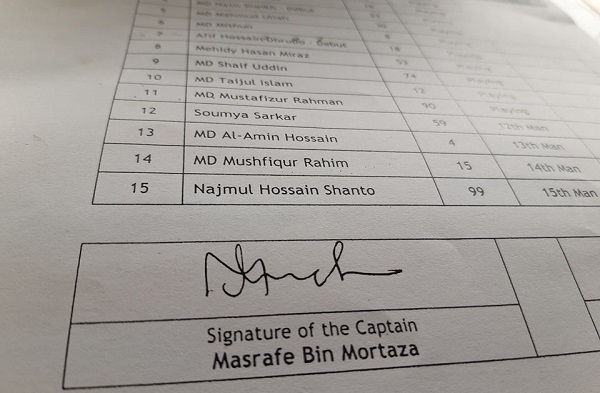 5
6 MD Mithun
7 Afif Hossain Dhrubo - Debut 8
8 Mehidy Hasan Miraz 18 Playing
9 MD Shaif Uddin 53 Playing
10 MD Taijul Islam 74 Playing
11 MD Mustafizur Rahman 12 Playing
12 Soumya Sarkar 90 Playing
13 MD Al-Amin Hossain 59 12th Man
14 MD Mushfiqur Rahim 4 13th Man
15 Najmul Hossain Shanto 15 14th Man
99 15th Man
Signature of the Captain
Masrafe Bin Mortaza